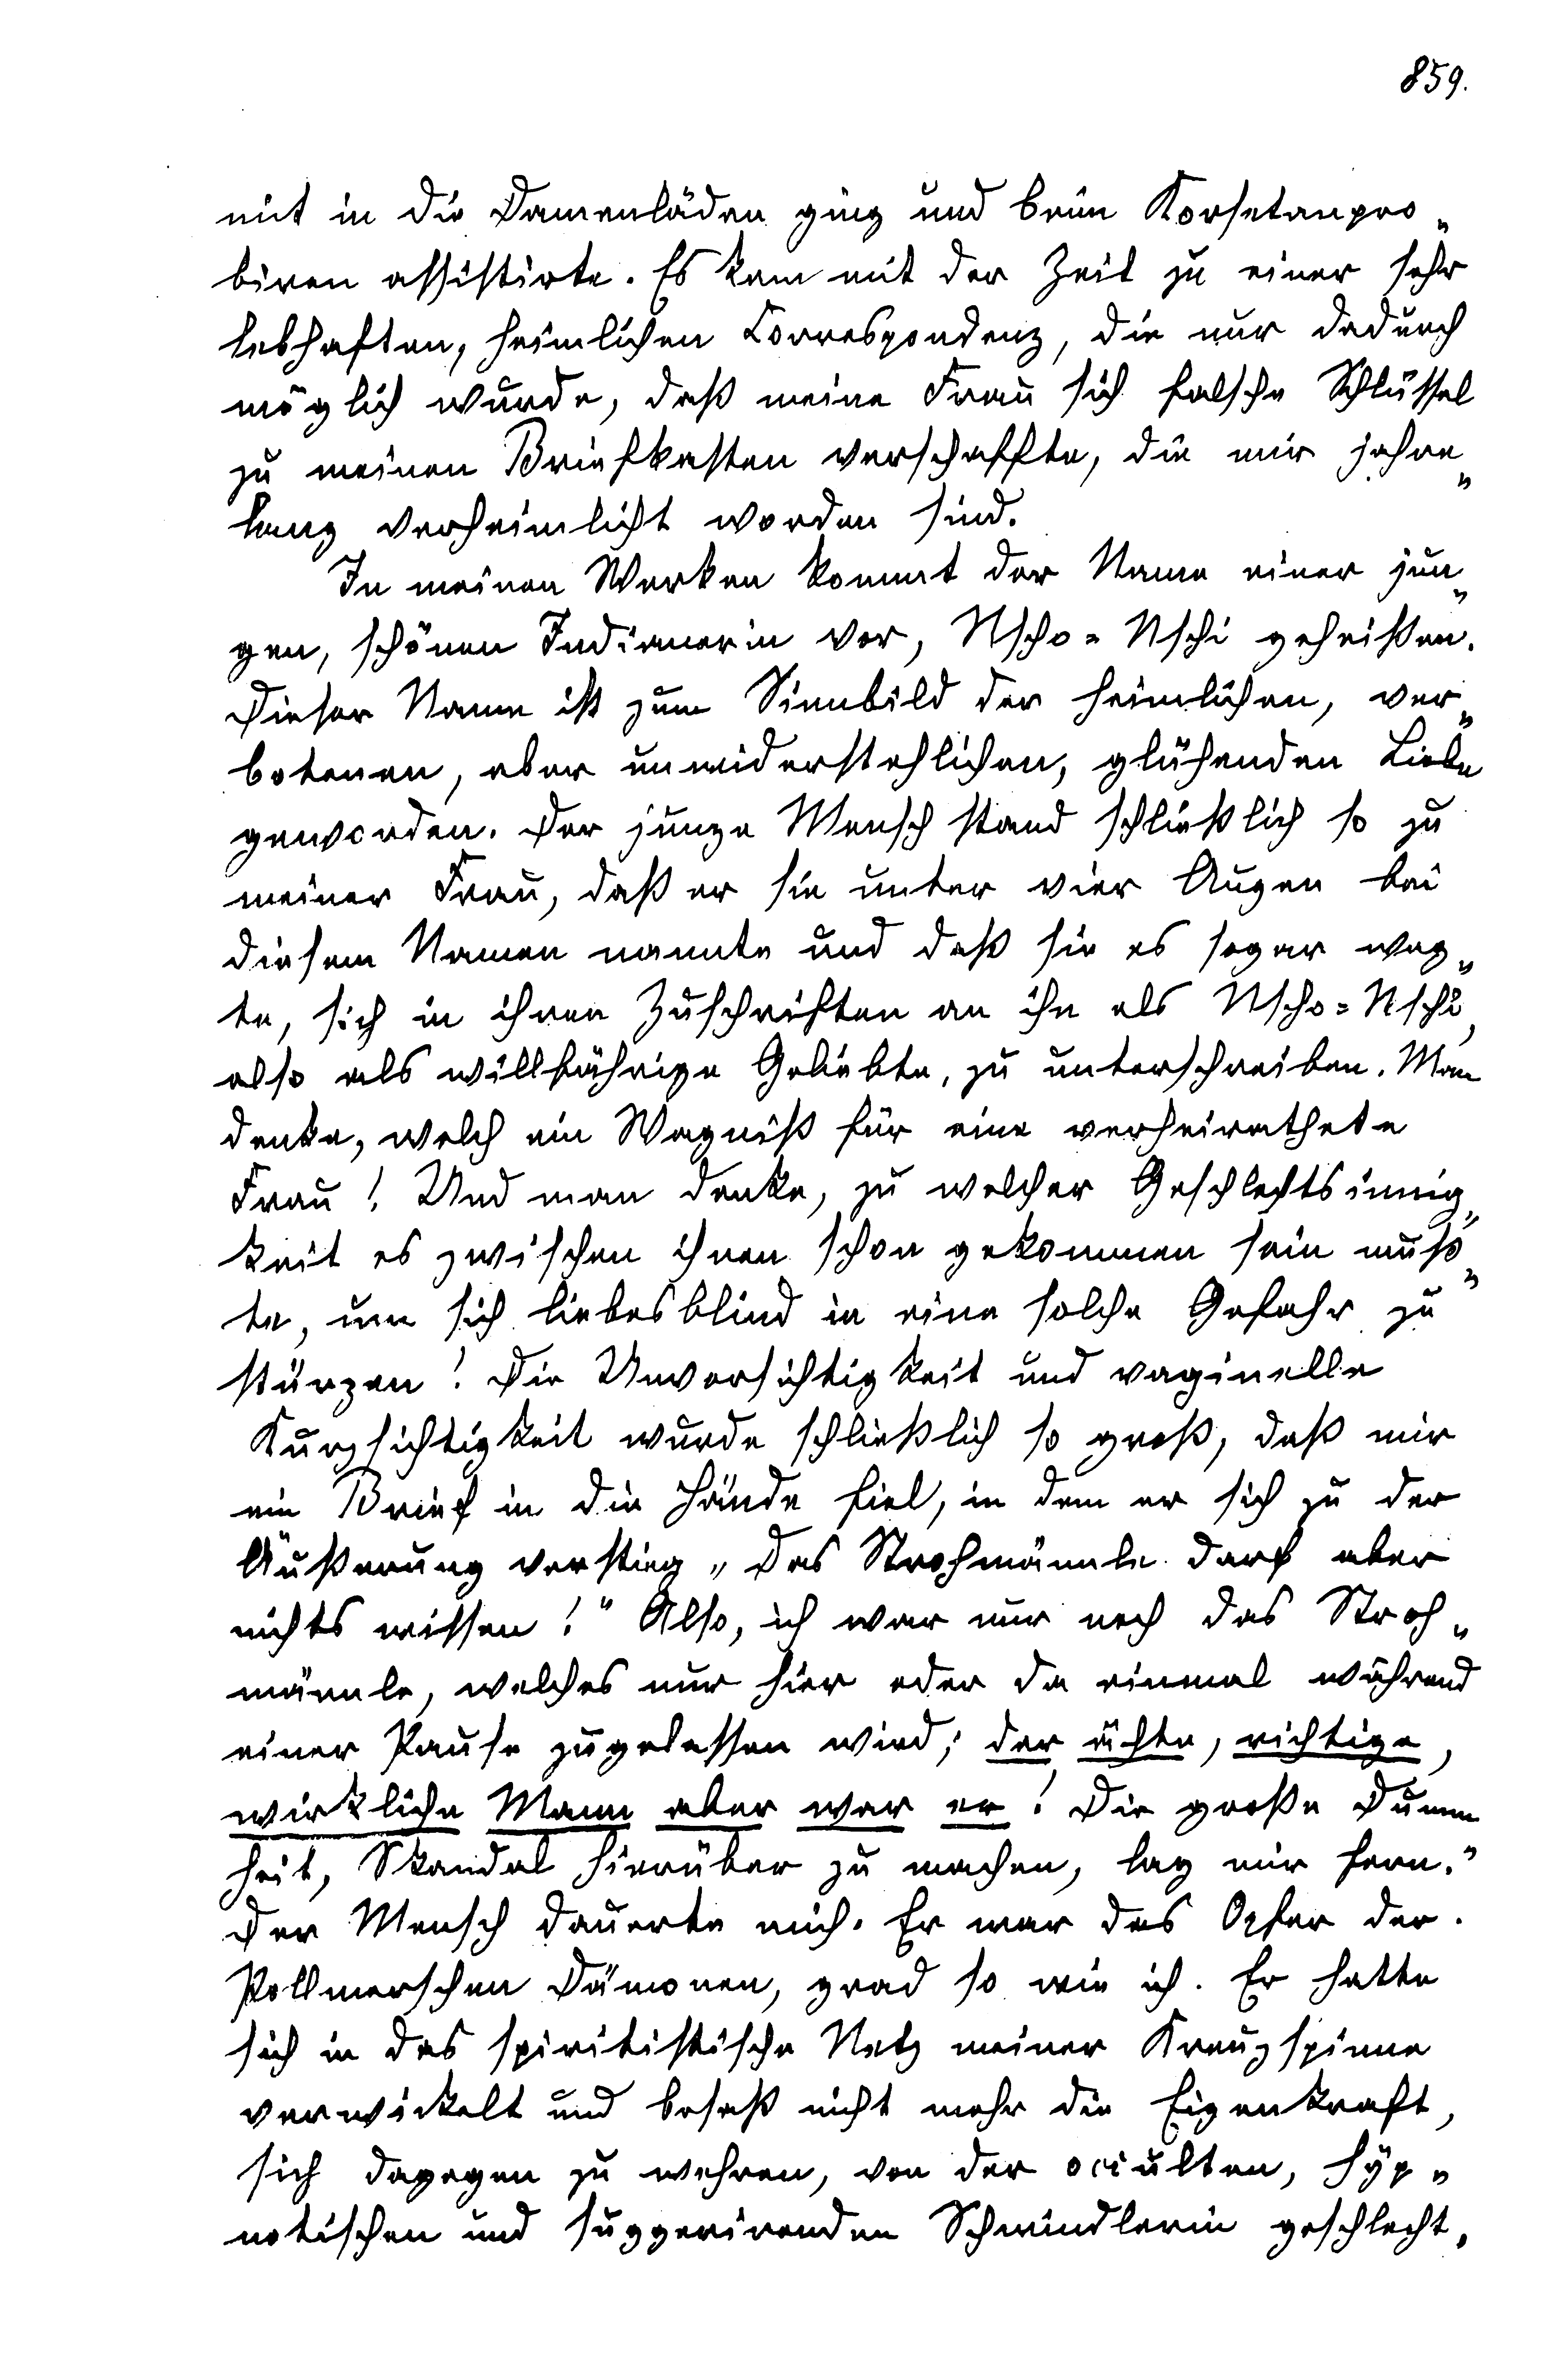 859.
mit in die Damenläden ging und beim Korsetanpro„
biren assistirte. Es kam mit der Zeit zu einer sehr
lebhaften, heimlichen Correspondenz, die nur dadurch
möglich wurde, daß meine Frau sich falsche Schlüssel
zu meinen Briefkasten verschaffte, die mir jahre„
lang verheimlicht worden sind.
In meinen Werken kommt der Name einer jun„
gen, schönen Indianerin vor, Nscho=Nschi geheißen.
Dieser Name ist zum Sinnbild der heimlichen, ver„
botenen, aber unwiderstehlichen, glühenden Liebe
geworden. Der junge Mensch stand schließlich so zu
meiner Frau, daß er sie unter vier Augen bei
diesem Namen nannte und daß sie es sogar wag„
te, sich in ihren Zuschriften an ihn als Nscho=Nschi,
also als willfährige Geliebte, zu unterschreiben. Man
denke, welch ein Wagniß für eine verheirathete
Frau! Und man denke, zu welcher Geschlechtsinnig„
keit es zwischen ihnen schon gekommen sein muß„
te, um sich liebesblind in eine solche Gefahr zu
stürzen! Die Unvorsichtigkeit und vaginelle
Kurzsichtigkeit wurde schließlich so groß, daß mir
ein Brief in die Hände fiel, in dem er sich zu der
Äußerung verstieg „Das Strohmännle darf aber
nichts wissen!" Also, ich war nur noch das Stroh„
männle, welches nur hier oder da einmal während
einer Pause zugelassen wird; der ächte, richtige,
wirkliche Mann aber war er! Die große Dumm„
heit, Skandal hierüber zu machen, lag mir fern.
Der Mensch dauerte mich. Er war das Opfer der
Pollmerschen Dämonen, grad so wie ich. Er hatte
sich in das spiritistische Netz meiner Kreuzspinne
verwickelt und besaß nicht mehr die Eigenkraft,
sich dagegen zu wehren, von der occulten, hyp„
notischen und suggerirenden Schwindlerin geschlecht„